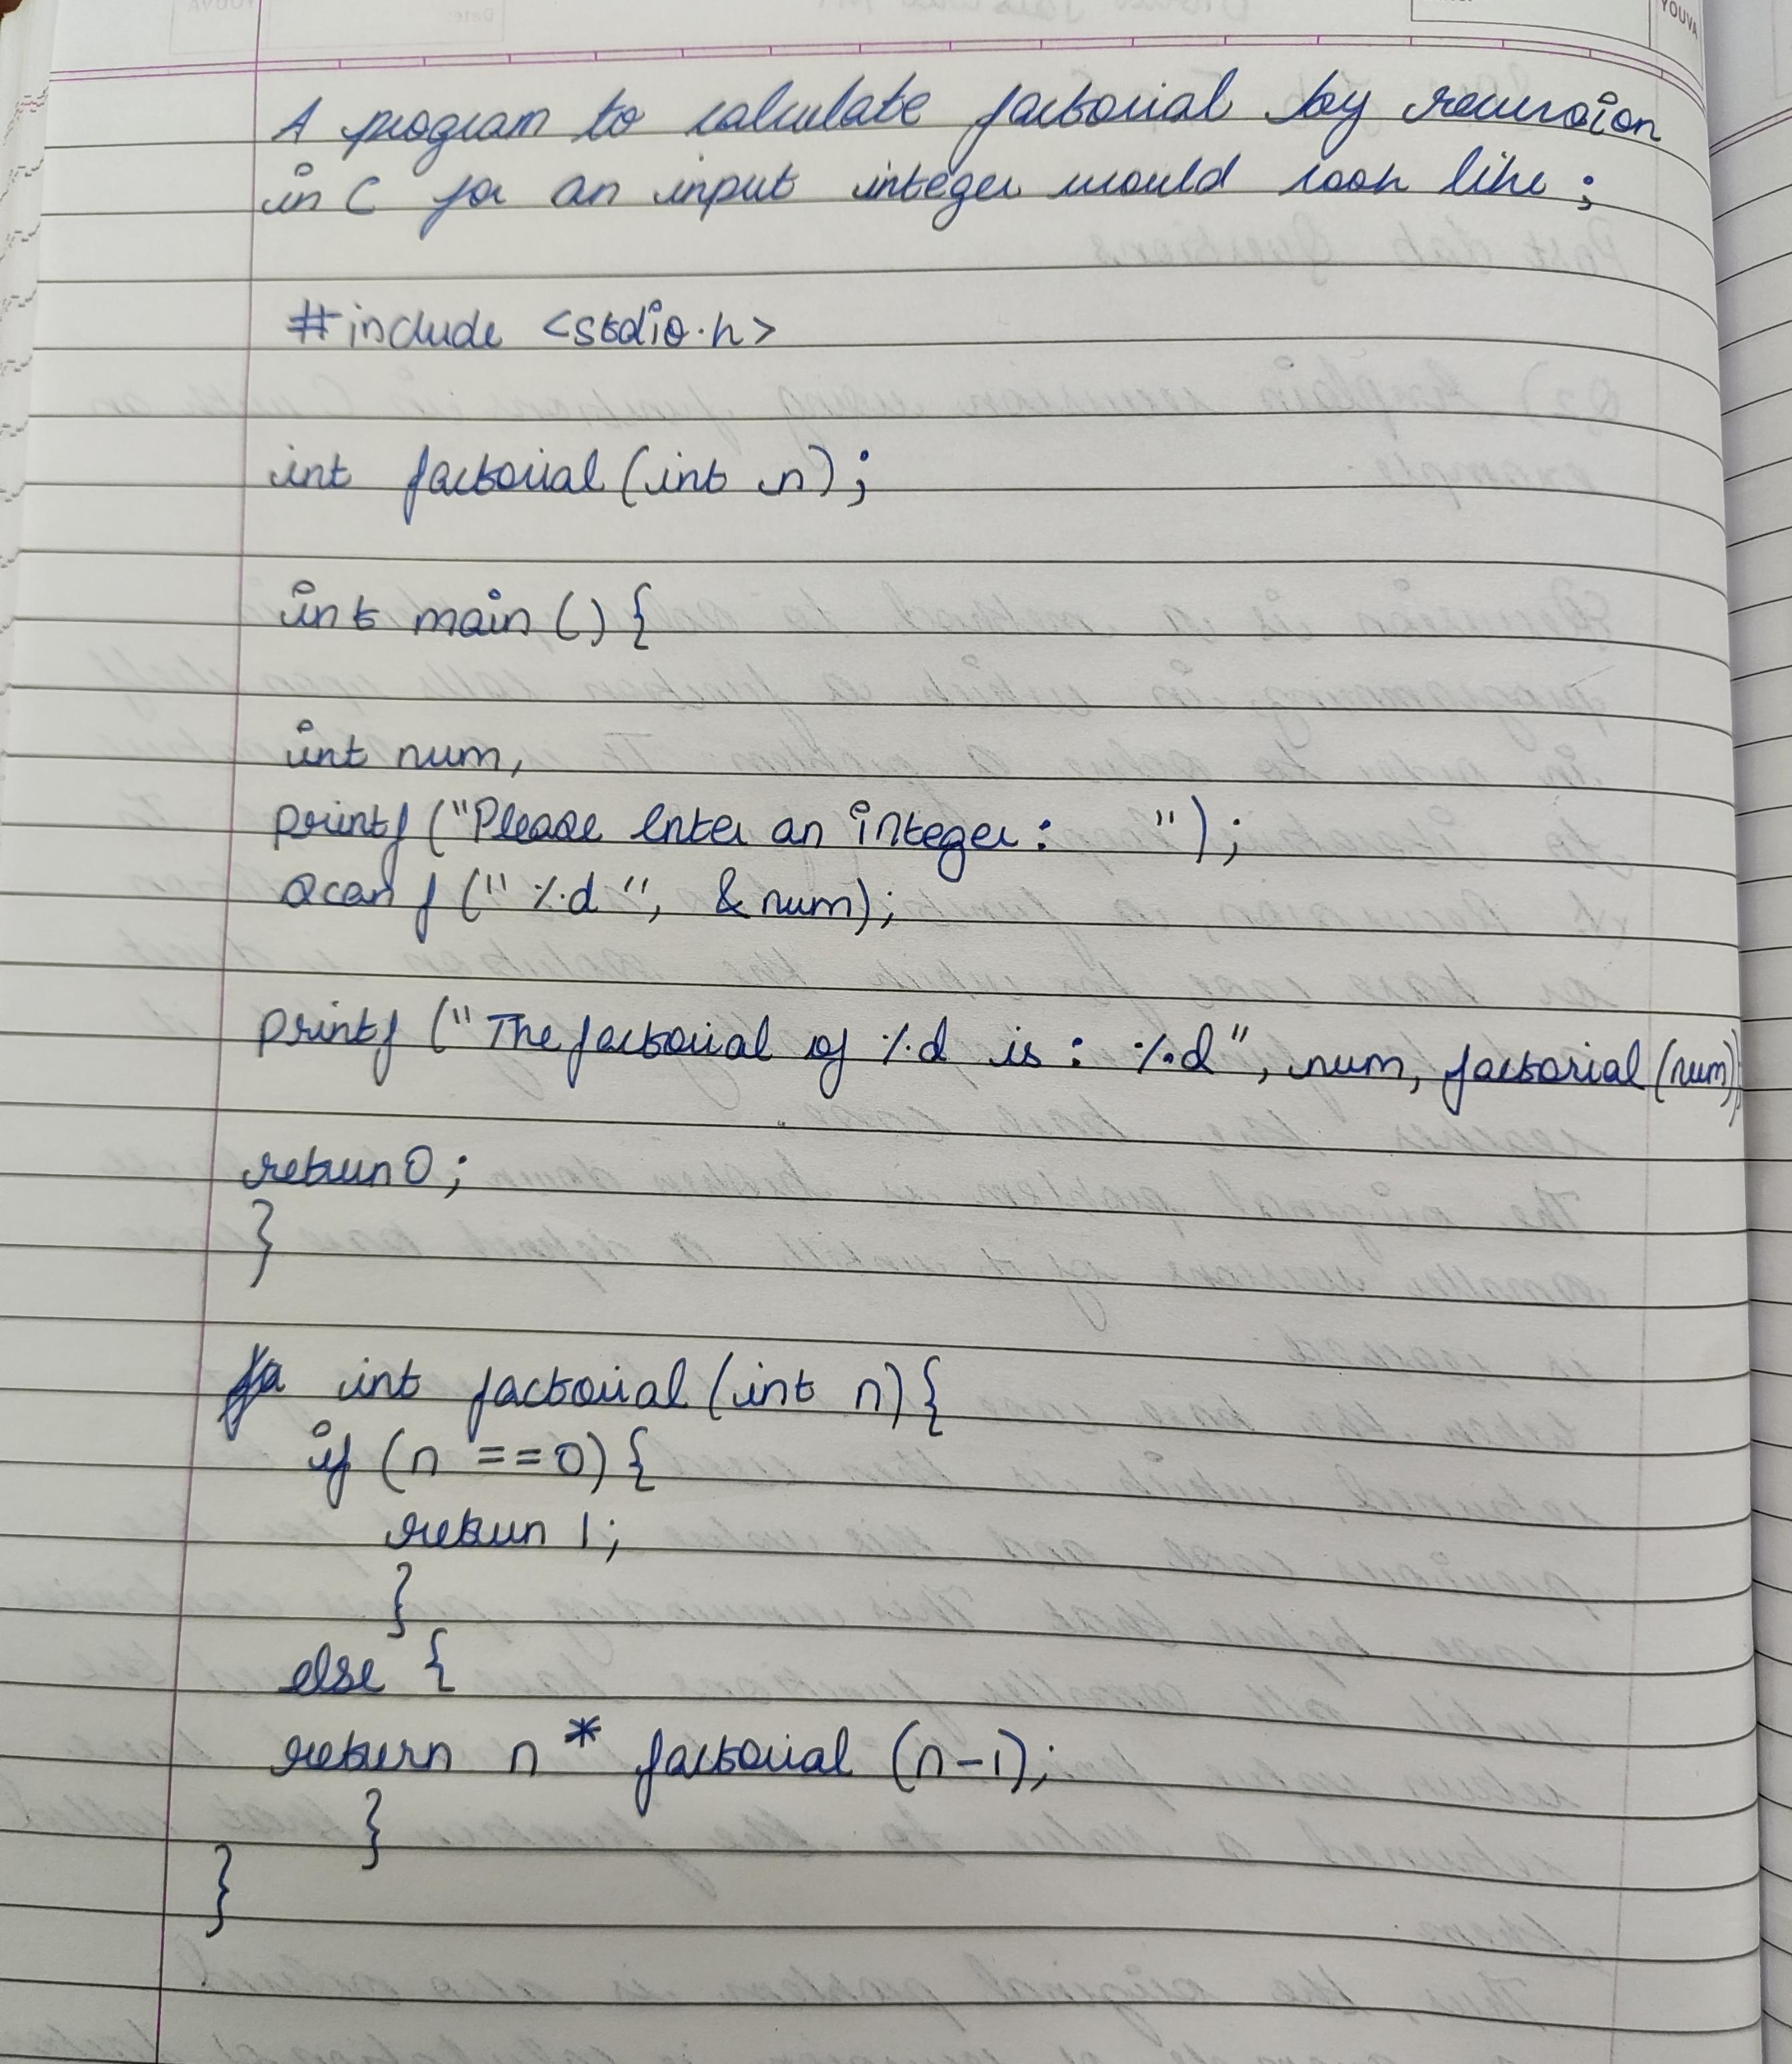 YOUVA
A program to calculate factorial by recursion
in C for an input integer would look like ;
#include <stdio.h>
int factorial (int n) ;
int main () {
int num,
printf ("Please enter an integer : ");
scanf (" %d ", & num);
printf (" The factorial of %d is : %d ", num, factorial (num));
return 0 ;
}
int factorial (int n) {
if (n == 0) {
return 1 ;
}
else {
return n * factorial (n-1);
}
}